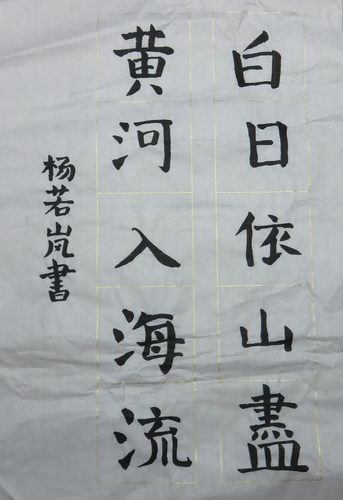 白日依山盡
黄河入海流
杨若岚書